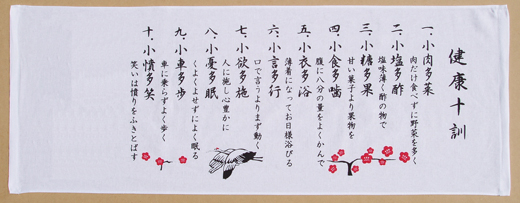 健康十訓
一、小肉多菜
肉だけ食べずに野菜を多く
二、小塩多酢
塩味薄く酢の物で
三、小糖多果
甘い菓子より果物を
四、小食多噛
腹に八分の量をよくかんで
五、小衣多浴
薄着になってお日様浴びる
六、小言多行
口で言うよりまず動く
七、小欲多施
人に施し心豊かに
八、小憂多眠
くよくよせずによく眠る
九、小車多歩
車に乗らずよく歩く
十、小憤多笑
笑いは憤りをふきとばす